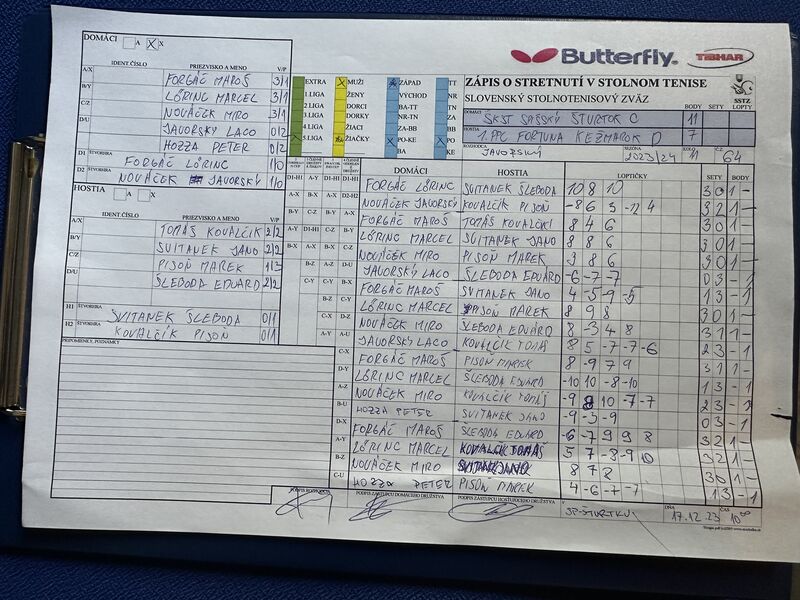 DOMÁCI A X X
IDENT. ČÍSLO PRIEZVISKO A MENO V/P
A/X FORGÁČ MAROŠ 3/1
B/Y LŐRINC MARCEL 3/1
C/Z NOVÁČEK MIRO 3/1
D/U JAVORSKÝ LACO 0/2
HOZZA PETER 0/2
D1 ŠTVORHRA FORGÁČ LŐRINC 1/0
D2 ŠTVORHRA NOVÁČEK JAVORSKÝ 1/0
HOSTIA A X
IDENT. ČÍSLO PRIEZVISKO A MENO V/P
A/X TOMÁŠ KOVALČIK 2/2
B/Y SVITANEK JANO 2/2
C/Z PIJOŇ MAREK 1/3
D/U ŠLEBODA EDUARD 2/2
H1 ŠTVORHRA SVITANEK ŠLEBODA 0/1
H2 ŠTVORHRA KOVALČÍK PIJOŇ 0/1
PRIPOMIENKY, POZNÁMKY
EXTRA MUŽI ZÁPAD TT
1 LIGA ŽENY VÝCHOD NR
2 LIGA DORCI BA-TT TN
3 LIGA DORKY NR-TN ZA
4 LIGA ŽIACI ZA-BB BB
5 LIGA ŽIAČKY PO-KE PO
BA KE
Butterfly TIBHAR
ZÁPIS O STRETNUTÍ V STOLNOM TENISE
SLOVENSKÝ STOLNOTENISOVÝ ZVÄZ SSTZ
BODY SETY LOPTY
DOMÁCI ŠKST SPIŠSKÝ ŠTVRTOK C 11
HOSTIA 1. PPC FORTUNA KEŽMAROK D 7
ROZHODCA JAVORSKÝ SEZÓNA 2023/24 KOLO 11 Č.Z. 64
DOMÁCI HOSTIA LOPTIČKY SETY BODY
FORGÁČ LŐRINC SVITANEK ŠLEBODA 10 8 10 3 0 1 -
NOVÁČEK JAVORSKÝ KOVALČÍK PIJOŇ -8 6 5 -12 4 3 2 1 -
FORGÁČ MAROŠ TOMÁŠ KOVALČÍK 8 4 6 3 0 1 -
LŐRINC MARCEL SVITANEK JANO 8 8 6 3 0 1 -
NOVÁČEK MIRO PIJOŇ MAREK 3 8 6 3 0 1 -
JAVORSKÝ LACO ŠLEBODA EDUÁRD -6 -7 -7 0 3 - 1
FORGÁČ MAROŠ SVITANEK JANO 4 -5 -9 -5 1 3 - 1
LŐRINC MARCEL PIJOŇ MAREK 8 9 8 3 0 1 -
NOVÁČEK MIRO ŠLEBODA EDUÁRD 8 -3 4 8 3 1 1 -
JAVORSKÝ LACO KOVALČÍK TOMÁŠ 8 5 -7 -7 -6 2 3 - 1
FORGÁČ MAROŠ PIJOŇ MAREK 8 -9 7 9 3 1 1 -
LŐRINC MARCEL ŠLEBODA EDUARD -10 10 -8 -10 1 3 - 1
NOVÁČEK MIRO KOVALČÍK TOMÁŠ -9 8 10 -7 -7 2 3 - 1
HOZZA PETER SVITANEK JANO -9 -3 -9 0 3 - 1
FORGÁČ MAROŠ ŠLEBODA EDUARD -6 -7 9 9 8 3 2 1 -
LŐRINC MARCEL KOVALCIK TOMÁŠ 5 7 -8 -9 10 3 2 1 -
NOVÁČEK MIRO SVITANEK JANO 8 7 8 3 0 1 -
HOZZA PETER PIJOŇ MAREK 4 -6 -7 -7 1 3 - 1
PODPIS ROZHODCU PODPIS ZÁSTUPCU DOMÁCEHO DRUŽSTVA PODPIS ZÁSTUPCU HOSŤUJÚCEHO DRUŽSTVA V SP. ŠTVRTKU DŇA 17.12.23 ČAS 10⁰⁰